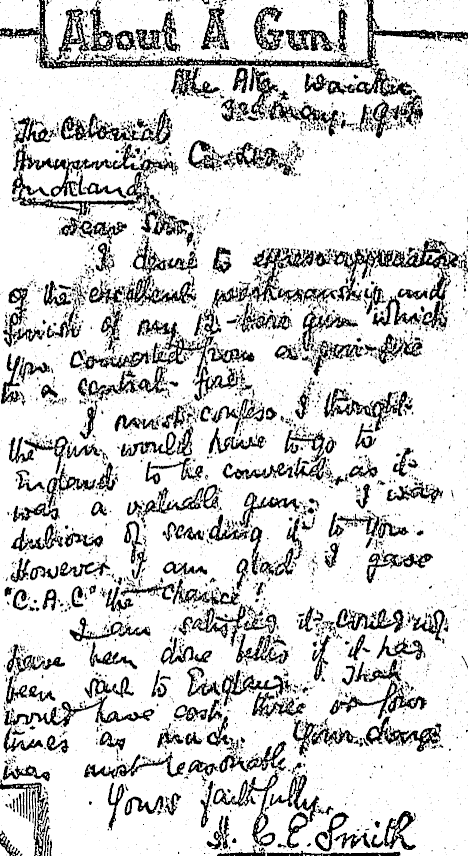 About A Gun!
The Colonial
Ammunition Co. Ltd.,
Auckland
Dear Sirs,
I desire to express appreciation
of the excellent workmanship and
finish of my 12-bore gun which
you converted from a pin-fire
to a central-fire.
I must confess I thought
the gun would have to go to
England to be converted, as it
was a valuable gun; I was
dubious of sending it to you.
However, I am glad I gave
"C.A.C" the chance!
I am satisfied it could not
have been done better if it had
been sent to England. That
would have cost three or four
times as much. Your charge
was most reasonable.
Yours faithfully,
C. E. Smith